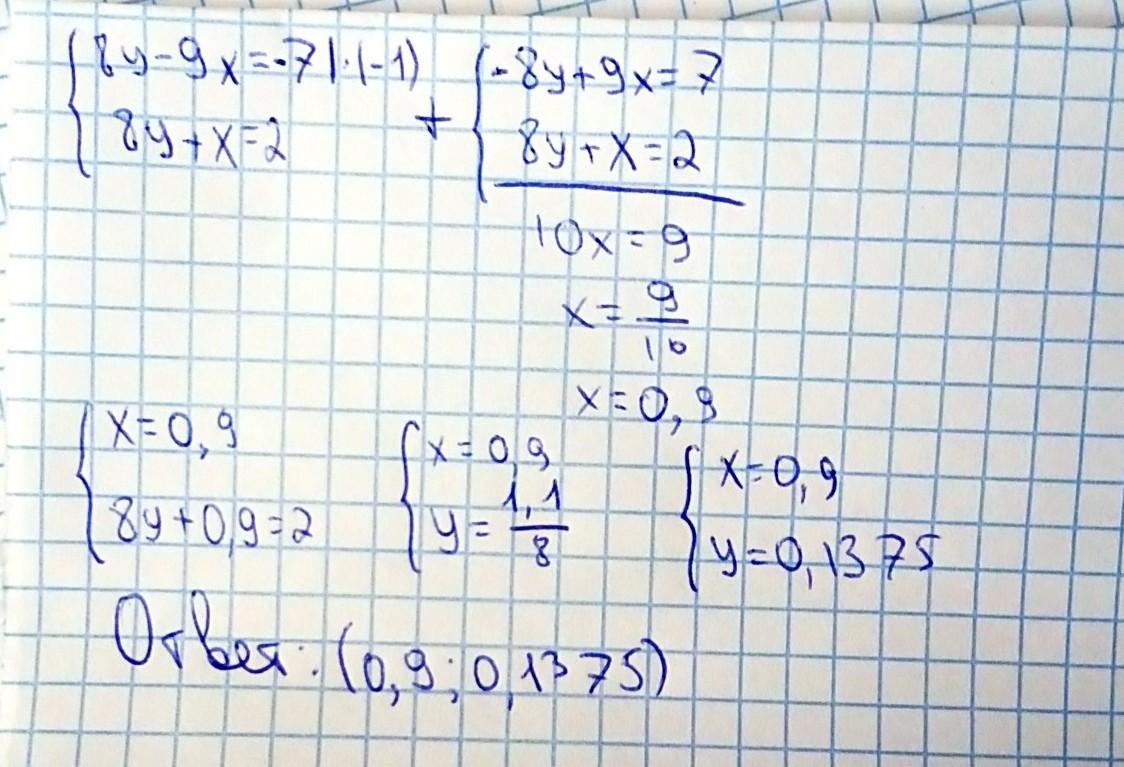 8y-9x=-7|·(-1)
8y+x=2
+
-8y+9x=7
8y+x=2
10x=9
x=9/10
x=0,9
x=0,9
8y+0,9=2
x=0,9
y=1,1/8
x=0,9
y=0,1375
Ответ: (0,9; 0,1375)